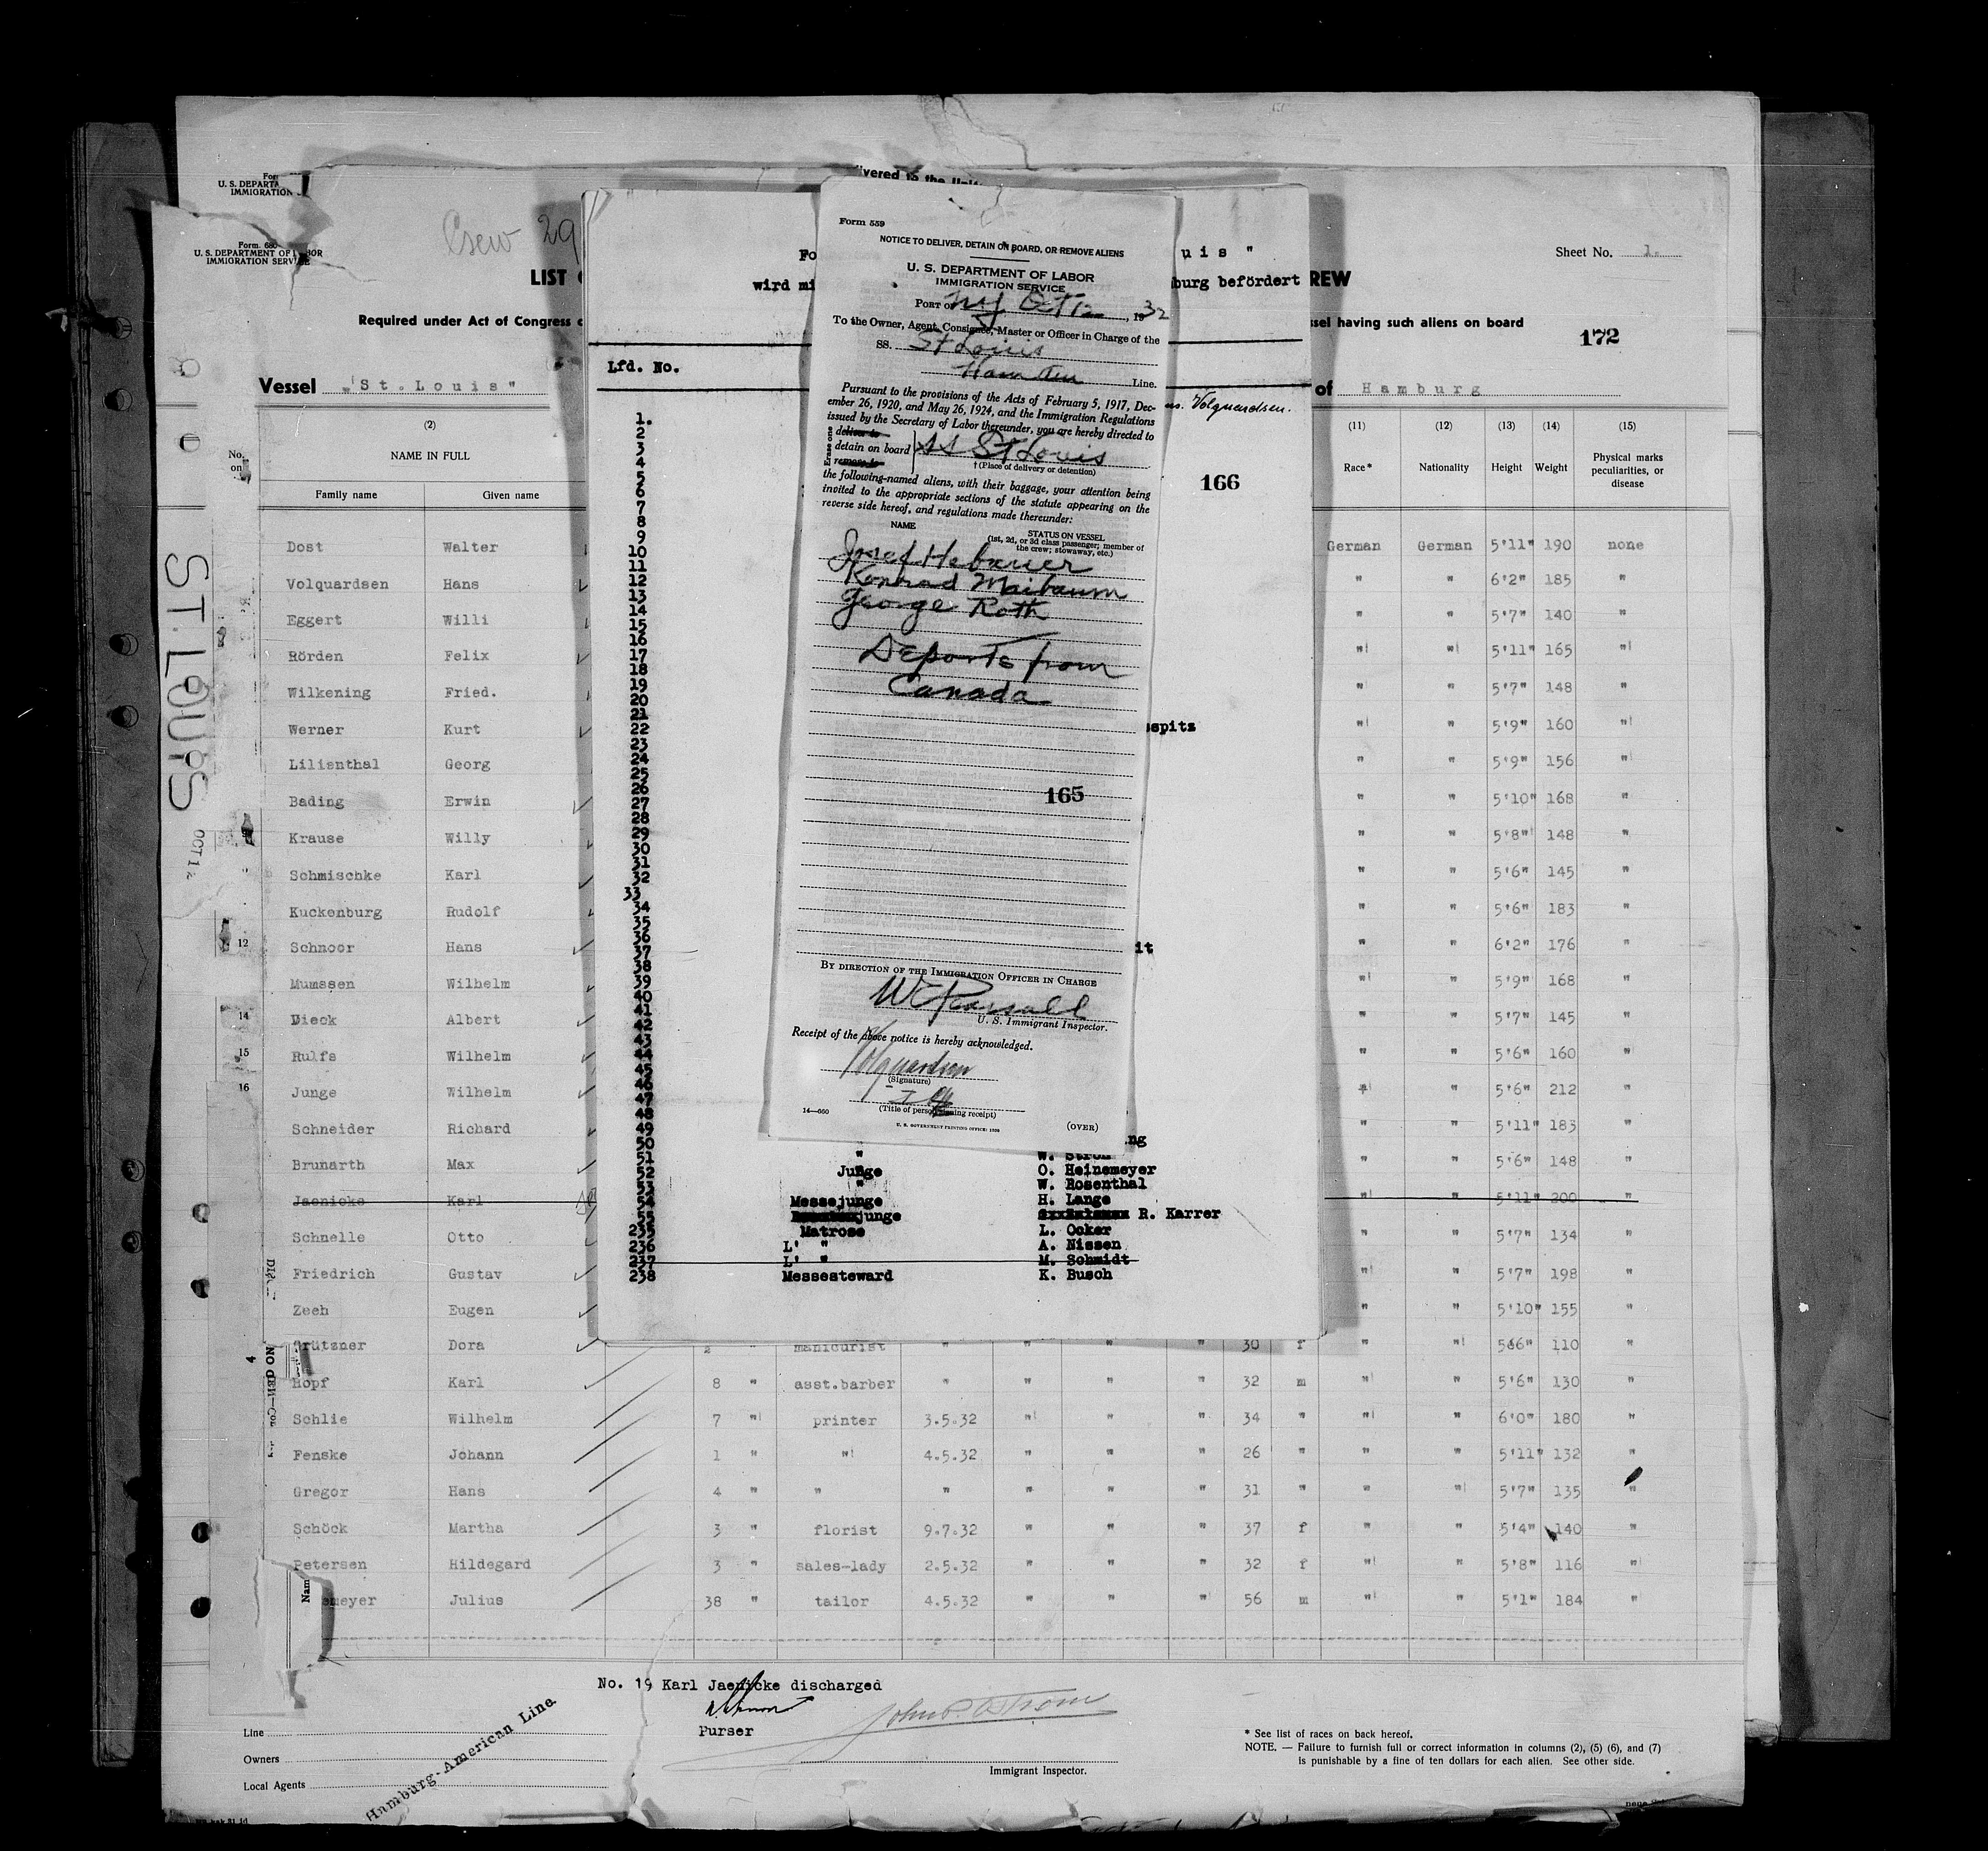 U. S. DEPARTA
IMMIGRATION
Form. 680
U. S. DEPARTMENT OF LABOR
IMMIGRATION SERVICE
Crew 29
LIST
Required under Act of Congress
Vessel "St.Louis"
(2)
NAME IN FULL
No.
on
Family name Given name
Dost Walter
Volquardsen Hans
Eggert Willi
Rörden Felix
Wilkening Fried.
Werner Kurt
Lilienthal Georg
Bading Erwin
Krause Willy
Schmischke Karl
Kuckenburg Rudolf
12 Schnoor Hans
Mumssen Wilhelm
14 Dieck Albert
15 Rulfs Wilhelm
16 Junge Wilhelm
Schneider Richard
Brunarth Max
Jaenicke Karl
Schnelle Otto
Friedrich Gustav
Zeeh Eugen
Grützner Dora
Hopf Karl
Schlie Wilhelm
Fenske Johann
Gregor Hans
Schöck Martha
Petersen Hildegard
emeyer Julius
ST. LOUIS
OCT 12
4
Nam
vered to the Unite
Fo
wird mi
Lfd. No.
1.
2
3
4
5
6
7
8
9
10
11
12
13
14
15
16
17
18
19
20
21
22
23
24
25
26
27
28
29
30
31
32
33
34
35
36
37
38
39
40
41
42
43
44
45
46
47
48
49
50
51 " W. Strom
52 Junge O. Heinemeyer
53 " W. Rosenthal
54 Messejunge H. Lange
55 junge R. Karrer
235 Matrose L. Ocker
236 L' " A. Nissen
237 L' " M. Schmidt
238 Messesteward K. Busch
uis "
burg befördert
Volquardsen.
166
spitz
it
ng
Form 559
NOTICE TO DELIVER, DETAIN ON BOARD, OR REMOVE ALIENS
U. S. DEPARTMENT OF LABOR
IMMIGRATION SERVICE
PORT OF NY Oct 12, 1932
To the Owner, Agent, Consignee, Master or Officer in Charge of the
SS. St Louis
Ham Am Line.
Pursuant to the provisions of the Acts of February 5, 1917, Dec-
ember 26, 1920, and May 26, 1924, and the Immigration Regulations
issued by the Secretary of Labor thereunder, you are hereby directed to
Erase one
deliver to
detain on board SS St Louis
remove to
† (Place of delivery or detention)
the following-named aliens, with their baggage, your attention being
invited to the appropriate sections of the statute appearing on the
reverse side hereof, and regulations made thereunder:
NAME
STATUS ON VESSEL
(1st, 2d, or 3d class passenger; member of
the crew; stowaway, etc.)
Josef Hebauer
Konrad Maibaum
George Roth
Deports from
Canada
165
BY DIRECTION OF THE IMMIGRATION OFFICER IN CHARGE
U. S. Immigrant Inspector.
Receipt of the above notice is hereby acknowledged.
Volquardsen
(Signature)
(Title of person signing receipt)
14—660
U. S. GOVERNMENT PRINTING OFFICE: 1930
(OVER)
Sheet No. 1.
REW
ssel having such aliens on board
172
of Hamburg
(11) (12) (13) (14) (15)
Race* Nationality Height Weight Physical marks
peculiarities, or
disease
German German 5'11" 190 none
" " 6'2" 185 "
" " 5'7" 140 "
" " 5'11" 165 "
" " 5'7" 148 "
" " 5'9" 160 "
" " 5'9" 156 "
" " 5'10" 168 "
" " 5'8" 148 "
" " 5'6" 145 "
" " 5'6" 183 "
" " 6'2" 176 "
" " 5'9" 168 "
" " 5'7" 145 "
" " 5'6" 160 "
" " 5'6" 212 "
" " 5'11" 183 "
" " 5'6" 148 "
" " 5'11" 200 "
" " 5'7" 134 "
" " 5'7" 198 "
" " 5'10" 155 "
2 " manicurist " " " " 30 f " " 5'6" 110 "
8 " asst.barber " " " " 32 m " " 5'6" 130 "
7 " printer 3.5.32 " " " 34 " " " 6'0" 180 "
1 " " 4.5.32 " " " 26 " " " 5'11" 132 "
4 " " " " " " 31 " " " 5'7" 135 "
3 " florist 9.7.32 " " " 37 f " " 5'4" 140 "
3 " sales-lady 2.5.32 " " " 32 f " " 5'8" 116 "
38 " tailor 4.5.32 " " " 56 m " " 5'1" 184 "
No. 19 Karl Jaenicke discharged
Purser
Immigrant Inspector.
Line
Owners
Local Agents
Hamburg-American Line.
* See list of races on back hereof.
NOTE. — Failure to furnish full or correct information in columns (2), (5) (6), and (7)
is punishable by a fine of ten dollars for each alien. See other side.